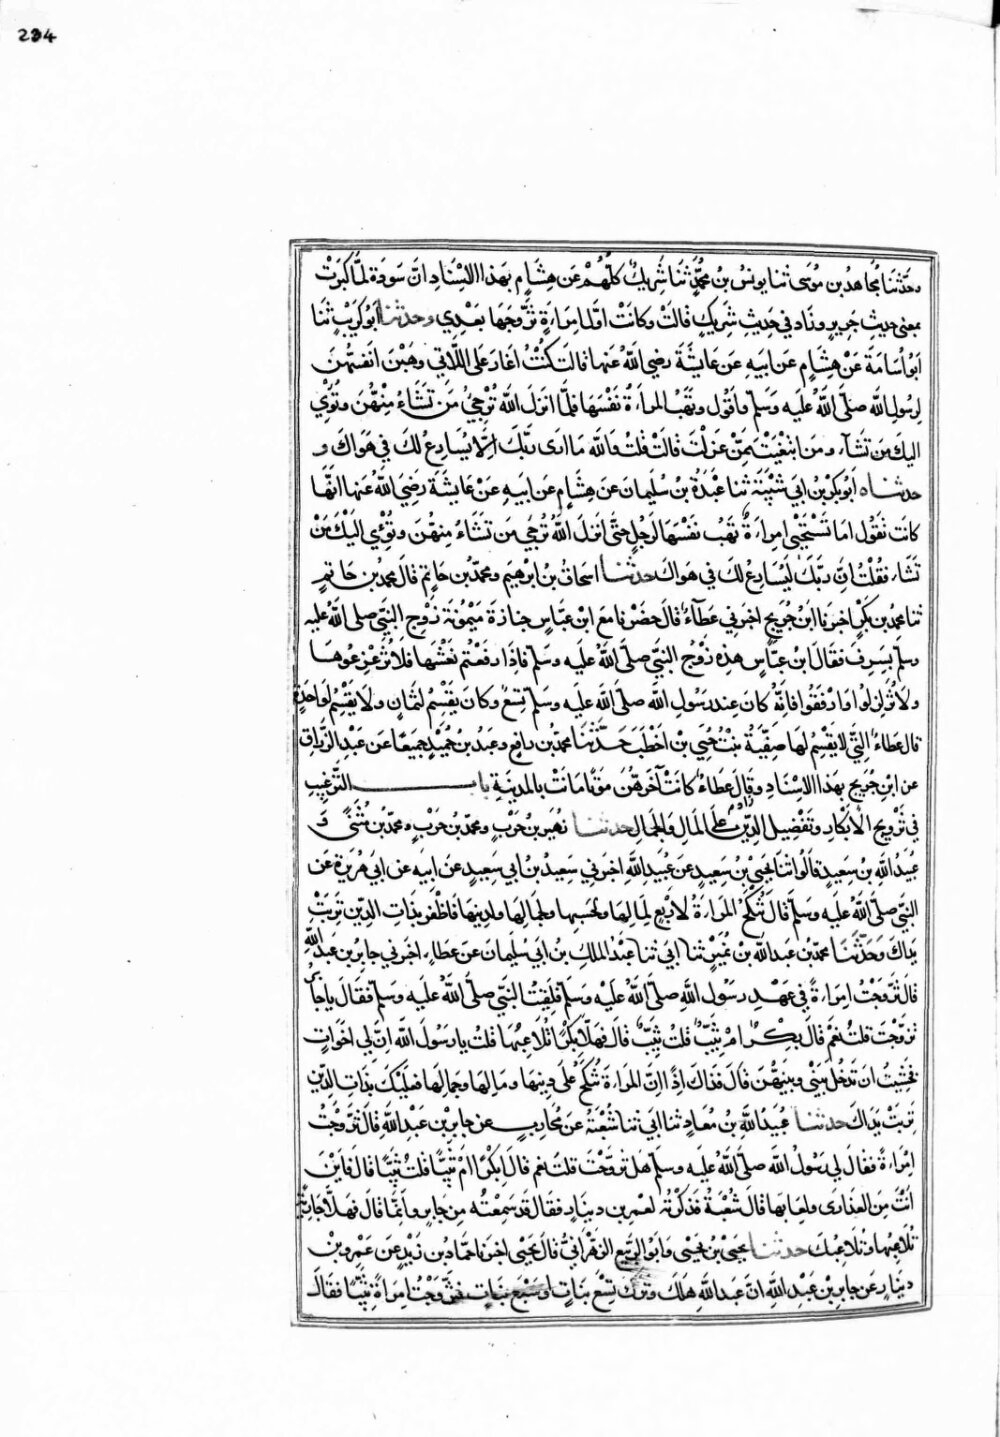 234
وحدثنا مجاهد بن موسى ثنا يونس بن محمد ثنا شريك كلهم عن هشام بهذا الاسناد ان سودة لما كبرت
بمعنى حديث جرير وزاد في حديث شريك قالت وكانت اول امراة تزوجها بعدي وحدثنا ابو كريب ثنا
ابو اسامة عن هشام عن ابيه عن عايشة رضي الله عنها قالت كنت اغار على اللاتي وهبن انفسهن
لرسول الله صلى الله عليه وسلم واقول وتهب المراة نفسها فلما انزل الله ترجي من تشاء منهن وتؤي
اليك من تشاء ومن ابتغيت ممن عزلت قالت قلت والله ما ارى ربك الا يسارع لك في هواك و
حدثناه ابو بكر بن ابي شيبة ثنا عبدة بن سليمان عن هشام عن ابيه عن عايشة رضي الله عنها انها
كانت تقول اما تستحيي امراة تهب نفسها لرجل حتى انزل الله ترجي من تشاء منهن وتؤي اليك من
تشاء فقلت ان ربك ليسارع لك في هواك حدثنا اسحاق بن ابرهيم ومحمد بن حاتم قال محمد بن حاتم
ثنا محمد بن بكر اخبرنا ابن جريج اخبرني عطاء قال حضرنا مع ابن عباس جنازة ميمونة زوج النبي صلى الله عليه
وسلم بسرف فقال ابن عباس هذه زوج النبي صلى الله عليه وسلم فاذا رفعتم نعشها فلا تزعزعوها
ولا تزلزلوا وارفقوا فانه كان عند رسول الله صلى الله عليه وسلم تسع وكان يقسم لثمان ولا يقسم لواحدة
قال عطاء التي لا يقسم لها صفية بنت حيي بن اخطب حدثنا محمد بن رافع وعبد بن حميد جميعا عن عبد الرزاق
عن ابن جريج بهذا الاسناد وزاد قال عطاء كانت آخرهن موتا ماتت بالمدينة باب الترغيب
في تزويج الابكار وتفضيل الدين على المال والجمال حدثنا زهير بن حرب ومحمد بن حرب ومحمد بن مثنى و
عبيد الله بن سعيد قالوا ثنا يحيى بن سعيد عن عبيد الله اخبرني سعيد بن ابي سعيد عن ابيه عن ابي هريرة عن
النبي صلى الله عليه وسلم قال تنكح المراة لاربع لمالها ولحسبها ولجمالها ولدينها فاظفر بذات الدين تربت
يداك وحدثنا محمد بن عبد الله بن نمير ثنا ابي ثنا عبد الملك بن ابي سليمان عن عطاء اخبرني جابر بن عبد الله
قال تزوجت امراة في عهد رسول الله صلى الله عليه وسلم فلقيت النبي صلى الله عليه وسلم فقال يا جابر
تزوجت قلت نعم قال بكر ام ثيب قلت ثيب قال فهلا بكرا تلاعبها قلت يا رسول الله ان لي اخوات
فخشيت ان تدخل بيني وبينهن قال فذاك اذا ان المراة تنكح على دينها ومالها وجمالها فعليك بذات الدين
تربت يداك حدثنا عبيد الله بن معاذ ثنا ابي ثنا شعبة عن محارب عن جابر بن عبد الله قال تزوجت
امراة فقال لي رسول الله صلى الله عليه وسلم هل تزوجت قلت نعم قال ابكرا ام ثيبا قلت ثيبا قال فاين
انت من العذارى ولعابها قال شعبة فذكرته لعمرو بن دينار فقال قد سمعته من جابر وانما قال فهلا جارية
تلاعبها وتلاعبك حدثنا يحيى بن يحيى وابو الربيع الزهراني قال يحيى اخبرنا حماد بن زيد عن عمرو بن
دينار عن جابر بن عبد الله ان عبد الله هلك وترك تسع بنات او سبع بنات فتزوجت امراة ثيبا فقال